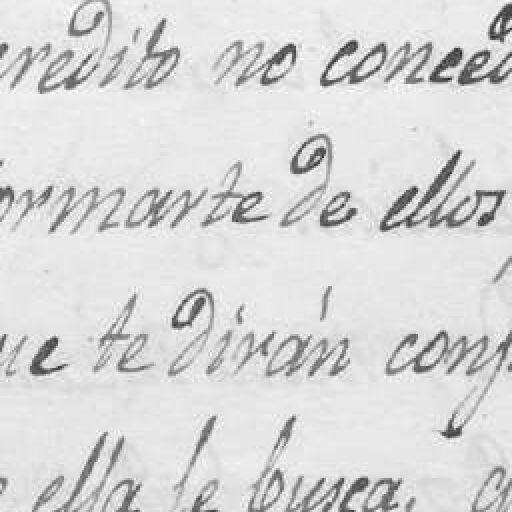 credito no conced
ormarte de ellos
ue te dirán conf
ella se busca.